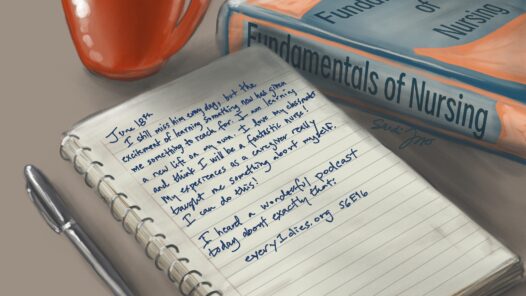 Fundam
of
Nursing
Fundamentals of Nursing
June 18th
I still miss him every day, but the
excitement of learning something new has given
me something to reach for. I am learning
a new life on my own. I love my classmates
and think I will be a fantastic nurse!
My experiences as a caregiver really
taught me something about myself.
I can do this!
I heard a wonderful podcast
today about exactly that:
every1dies.org S6E16